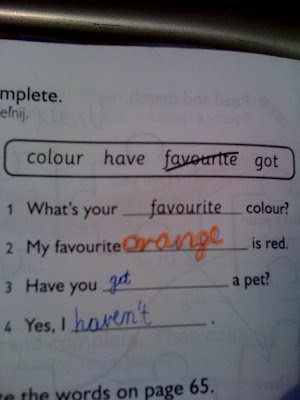 mplete.
ełnij.
colour have favourite got
1 What's your favourite colour?
2 My favourite orange is red.
3 Have you got a pet?
4 Yes, I haven't.
e the words on page 65.